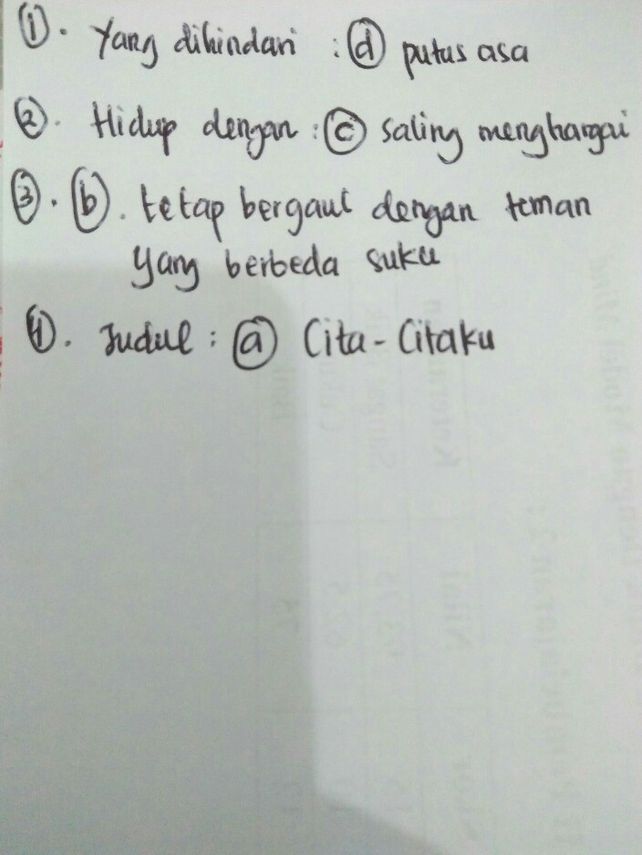 ①. Yang dihindari : ⓓ putus asa
②. Hidup dengan : ⓒ saling menghargai
③. ⓑ. tetap bergaul dengan teman
yang berbeda suku
④. Judul : ⓐ Cita-Citaku